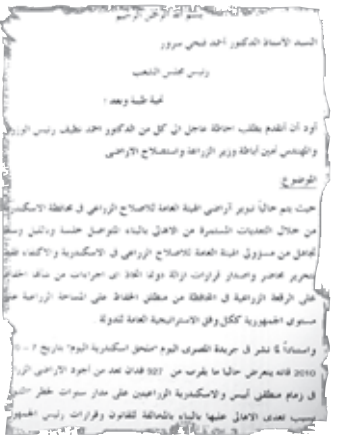 بسم الله الرحمن الرحيم
السيد الأستاذ الدكتور أحمد فتحي سرور
رئيس مجلس الشعب
تحية طيبة وبعد ؛
أود أن أتقدم بطلب احاطة عاجل الى كل من الدكتور احمد نظيف رئيس الوزر
والمهندس أمين أباظة وزير الزراعة واستصلاح الاراضى
الموضوع
حيث يتم حالياً تبوير أراضى الهيئة العامة للاصلاح الزراعى فى محافظة الاسكندر
من خلال التعديات المستمرة من الاهالى بالبناء المتواصل خلسة وبالليل وسط
تجاهل من مسؤولى الهيئة العامة للاصلاح الزراعى فى الاسكندرية والاكتفاء فقط
بتحرير محاضر واصدار قرارات ازالة دونما اتخاذ اى اجراءات من شأنها الحفاظ
على الرقعة الزراعية فى المحافظة من منطلق الحفاظ على المساحة الزراعية على
مستوى الجمهورية ككل وفق الاستراتيجية العامة للدولة .
واستناداً لما نشر فى جريدة المصرى اليوم "ملحق اسكندرية اليوم" بتاريخ
2010 فانه يتعرض حاليا ما يقرب من 927 فدان تعد من أجود الاراضى الزرا
فى زمام منطقتى أبيس والاسكندرية الزراعيتين على مدار سنوات لخطر "التبوير
بسبب تعدى الاهالى عليها بالبناء بالمخالفة للقانون وقرارات رئيس الجمهور